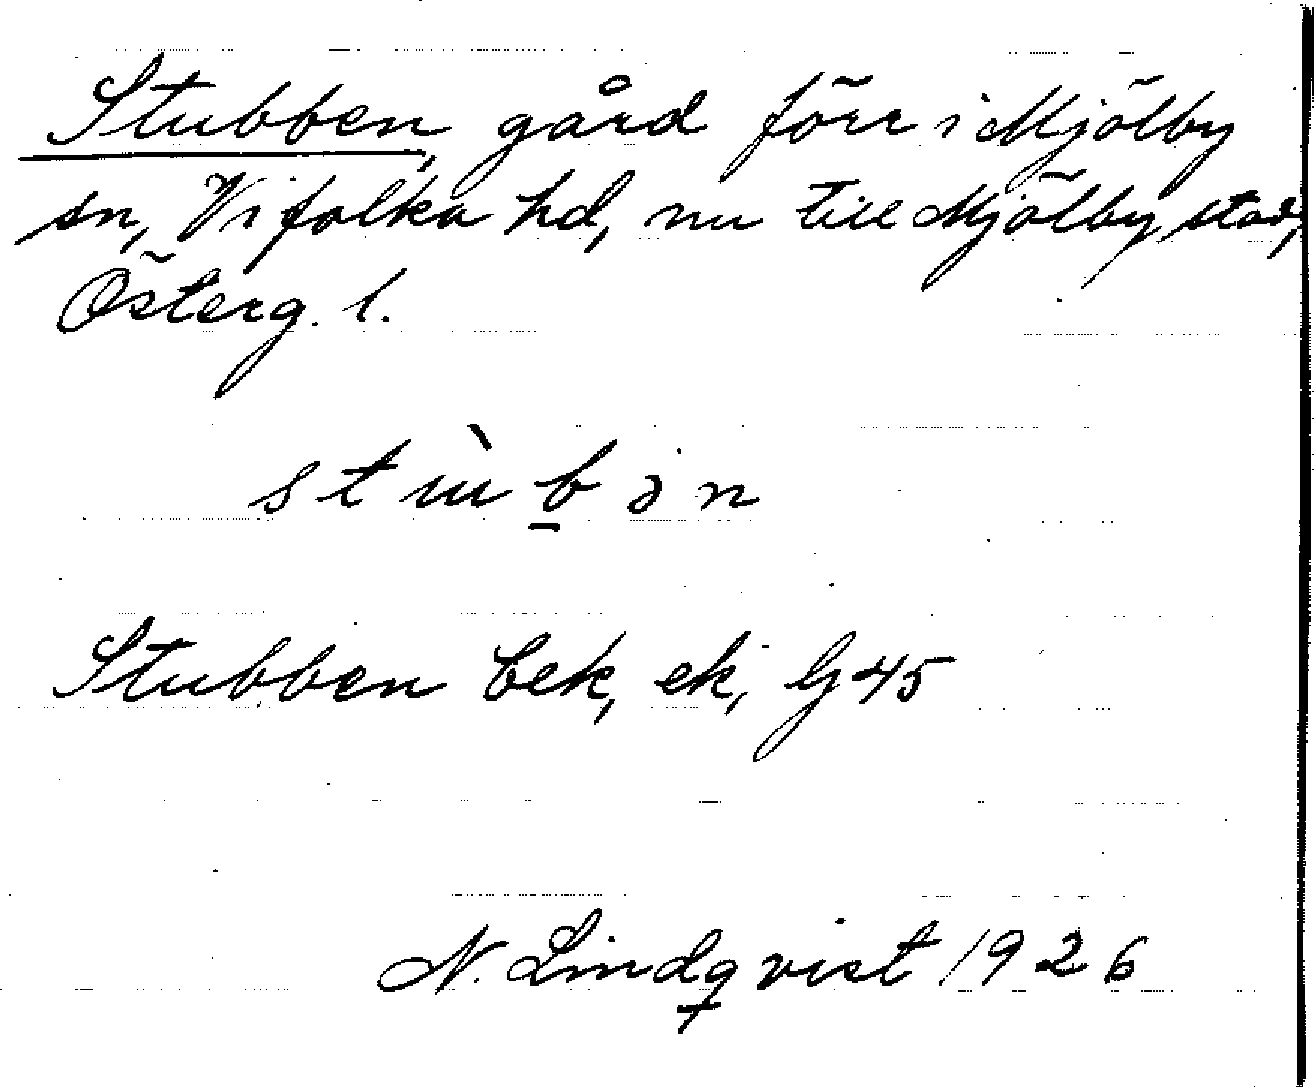 Stubben, gård förr i Mjölby
sn, Vifolka hd, nu till Mjölby stad,
Österg. l.
stùb̲ən
Stubben Cek, ek, Gj 45
N. Lindqvist 1926